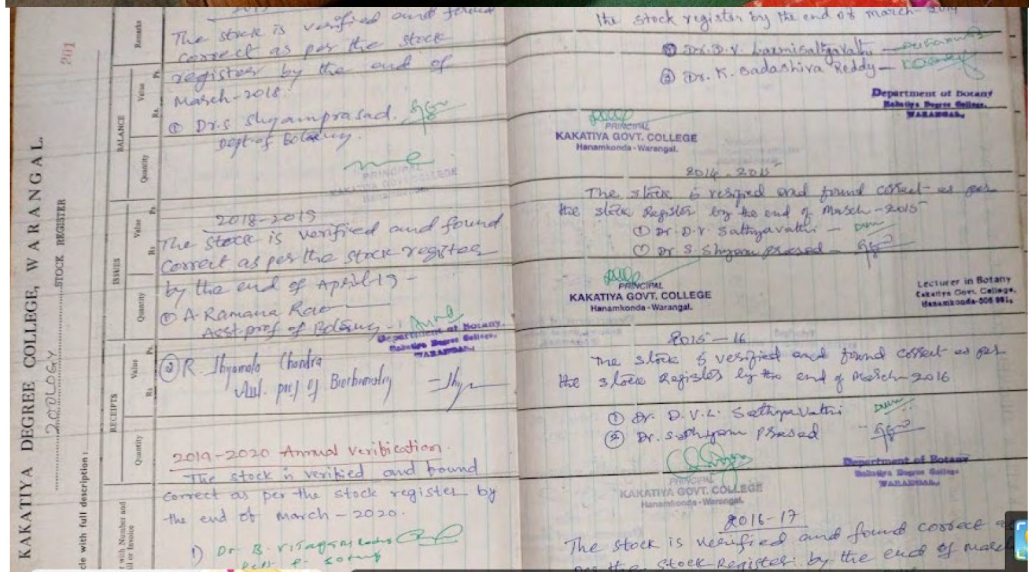 201
KAKATIYA DEGREE COLLEGE, WARANGAL.
ZOOLOGY STOCK REGISTER
cle with full description :
with Number and
ill or Invoice
RECEIPTS
Quantity
Value
Rs. Ps.
ISSUES
Quantity
Value
Rs. Ps.
BALANCE
Quantity
Value
Rs. Ps.
Remarks
The stock is verified and found
correct as per the stock
register by the end of
March-2018
① Dr. S Shyamprasad.
Dept of Botany.
PRINCIPAL
KAKATIYA GOVT COLLEGE
2018-2019
The stock is verified and found
correct as per the stock register
by the end of April-19-
① A. Ramana Rao
Asst. prof of Botany -
Department of Botany.
Kakatiya Degree College,
WARANGAL.
② R. Shyamala Chandra
Asst. prof of Biochemistry
2019-2020 Annual Verification.
The stock is verified and found
correct as per the stock register by
the end of March-2020.
1) Dr B.
the stock register by the end of March-2014
① Dr. D.V. Laxmisathyavathi
② Dr. K. Sadashiva Reddy
Department of Botany
Kakatiya Degree College,
WARANGAL.
PRINCIPAL
KAKATIYA GOVT. COLLEGE
Hanamkonda - Warangal.
2014-2015
The stock is verified and found correct as per
the stock register by the end of March-2015
① Dr. D.V. Sathyavathi -
① Dr. S. Shyam prasad -
PRINCIPAL
KAKATIYA GOVT. COLLEGE
Hanamkonda - Warangal.
Lecturer in Botany
Kakatiya Govt. College,
Hanamkonda-506 001.
2015-16
The stock is verified and found correct as per
the stock Register by the end of March-2016
① Dr. D.V.L. Sathyavathi
② Dr. S. Shyam prasad
Department of Botany
Kakatiya Degree College
WARANGAL.
PRINCIPAL
KAKATIYA GOVT. COLLEGE
Hanamkonda - Warangal.
2016-17
The stock is verified and found correct as
per the stock Register by the end of March